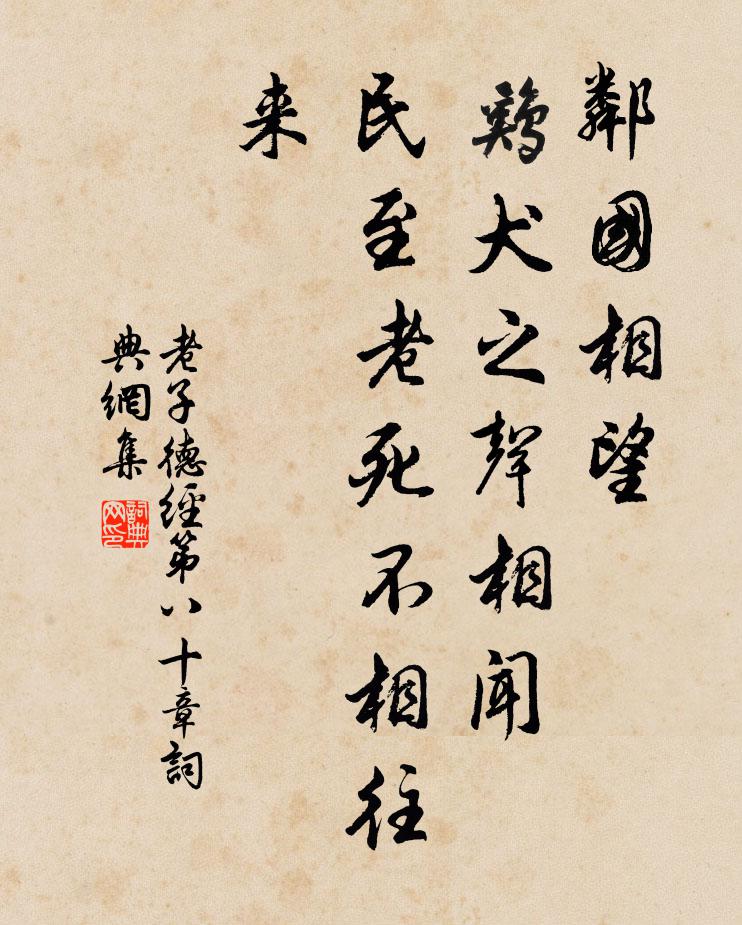 鄰國相望
鷄犬之聲相聞
民至老死不相往
来
老子德經第八十章詞
典網集
詞典
网印